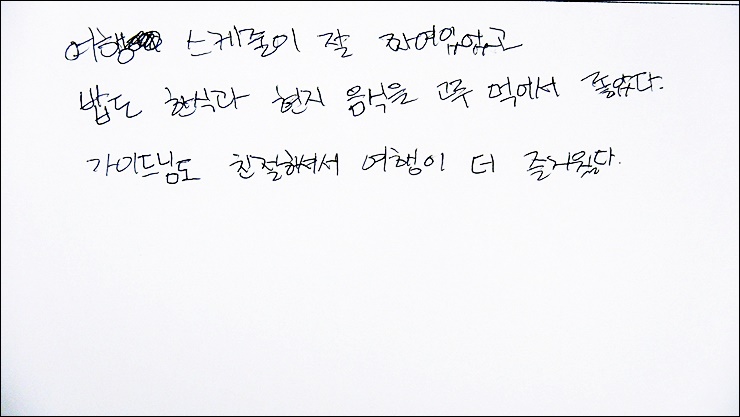 여행 스케줄이 잘 짜여있었고
밥도 한식과 현지 음식을 고루 먹어서 좋았다.
가이드님도 친절하셔서 여행이 더 즐거웠다.